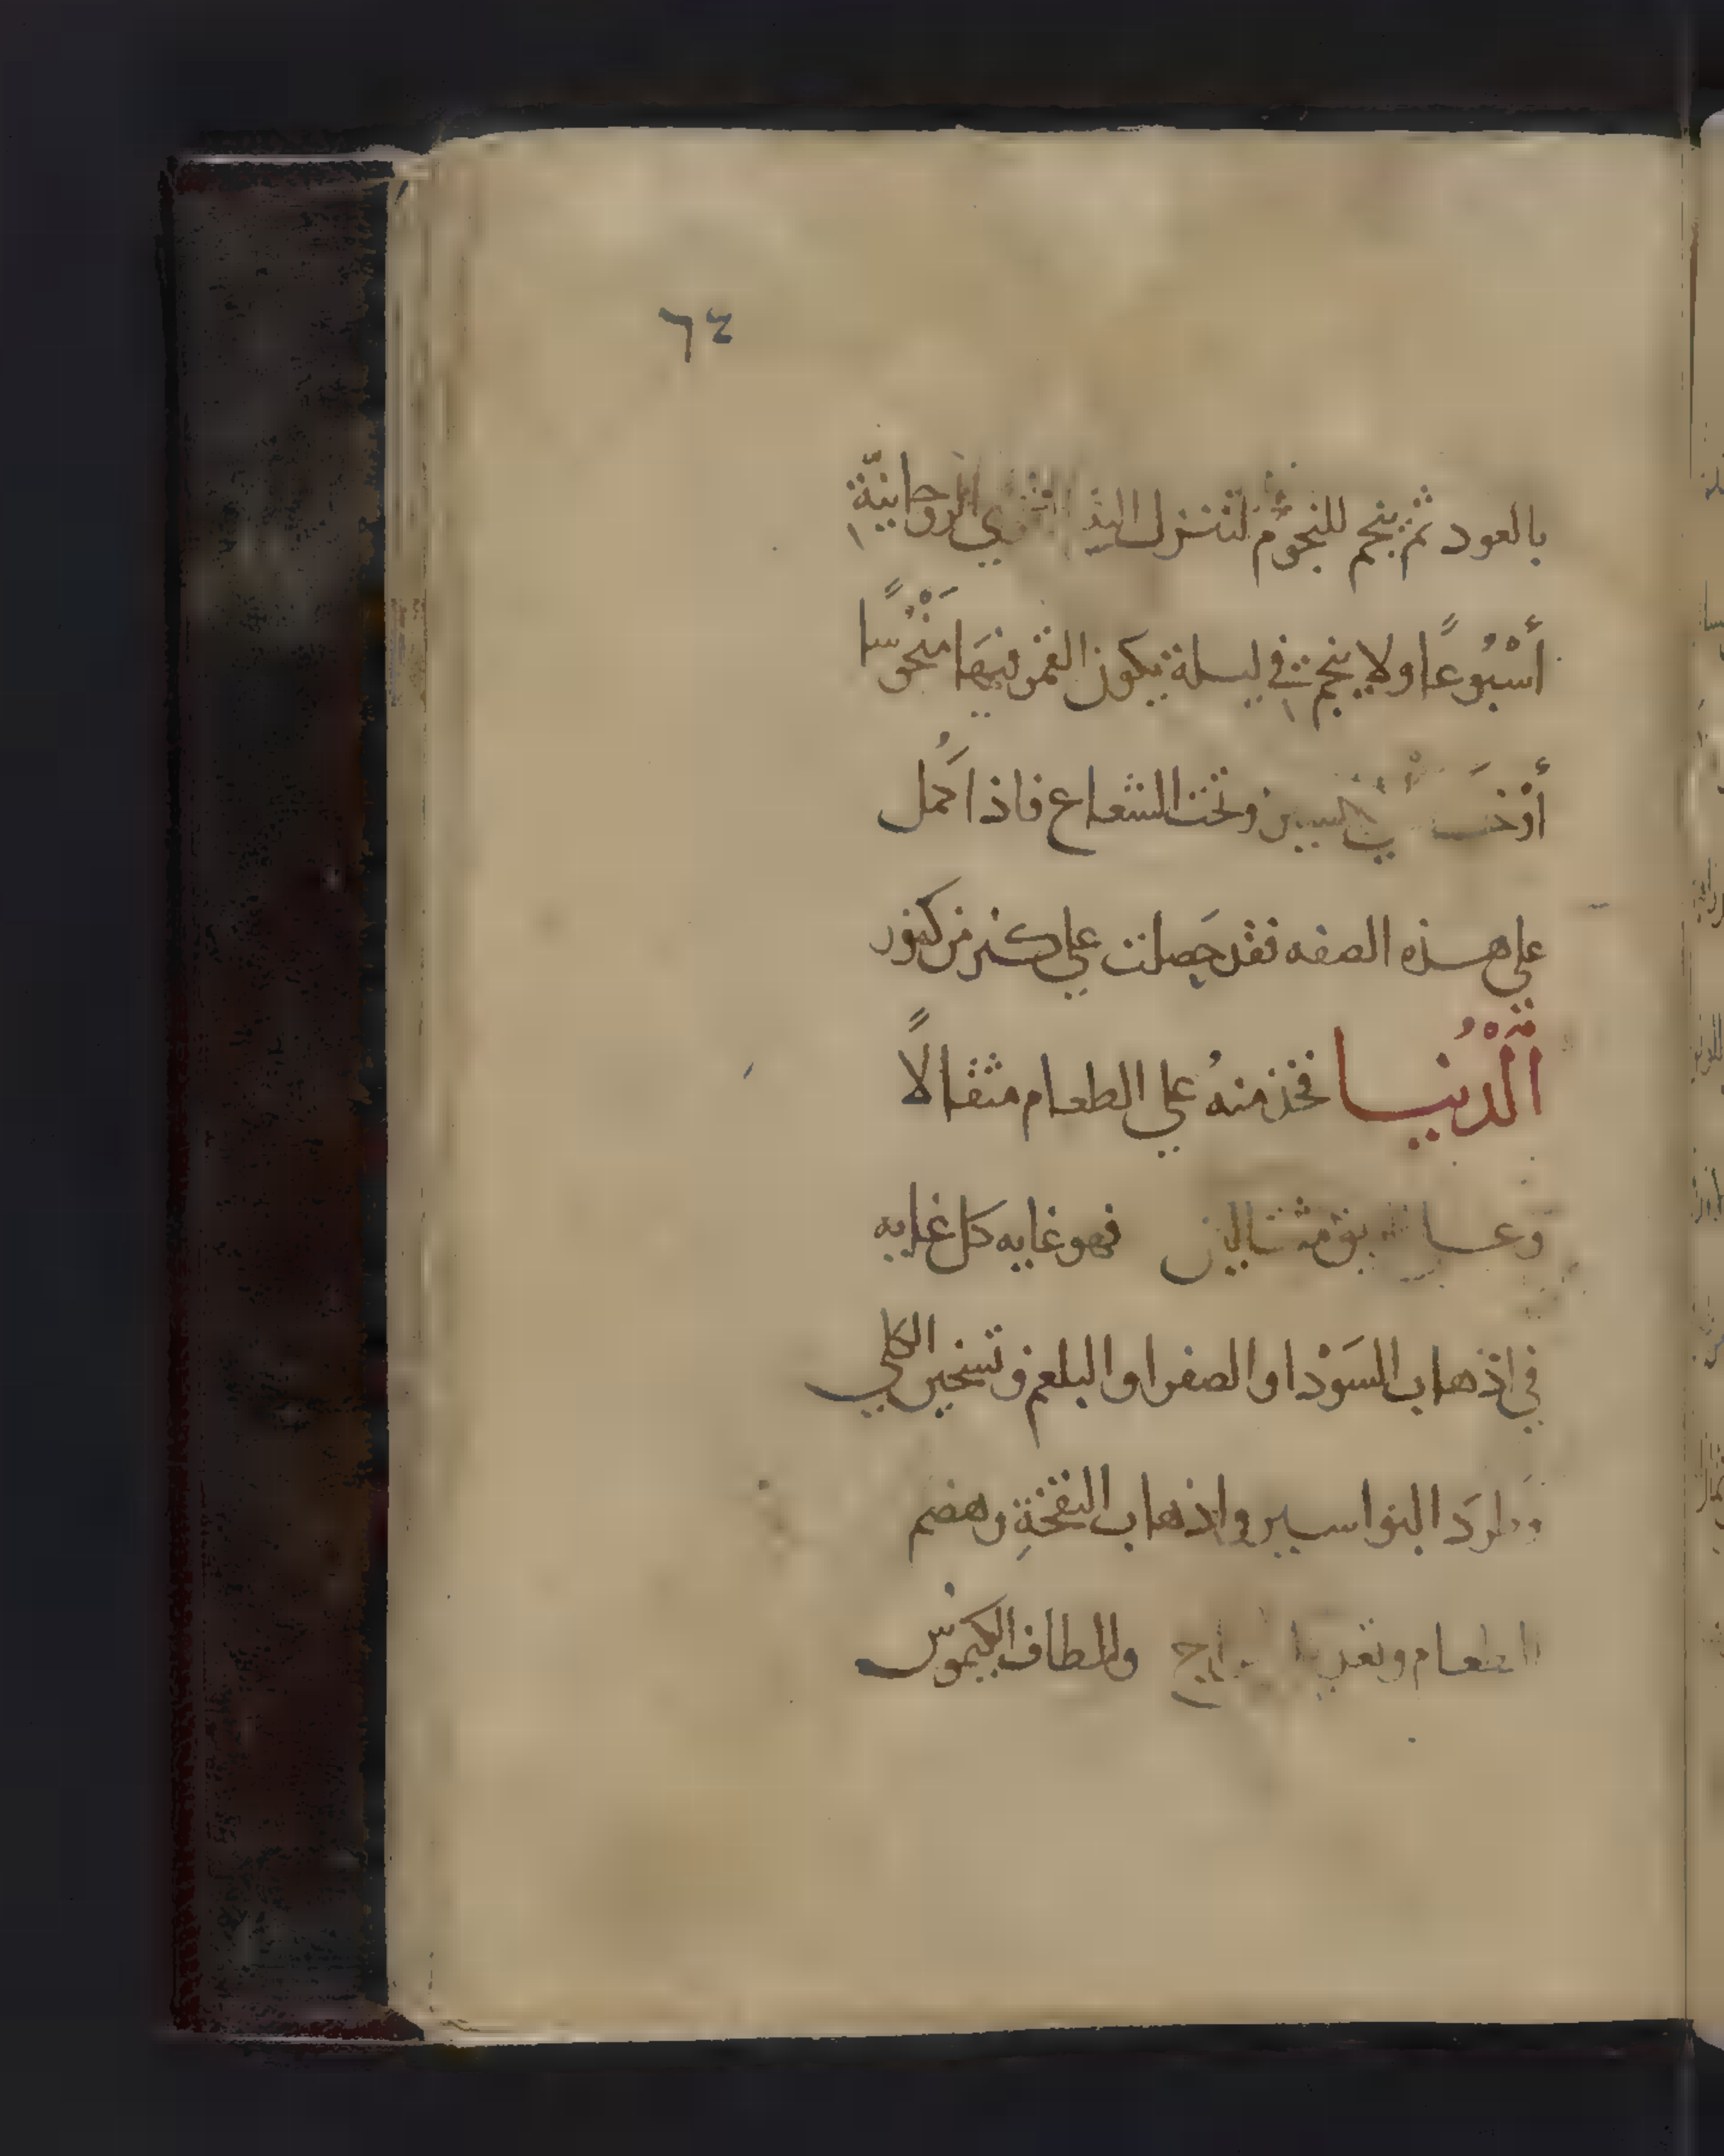 ٦٤
بالعود ثم ينجم للنجوم لتنزل الروحانيّة
أسْبُوعًا ولا ينجم في ليلة يكون القمر فيها مَنْحُوسًا
أوْ وتحت الشعاع فاذا كَمُل
على هذه الصفه فقد حَصلت على كنز من كنوز
الدُّنْيا فخذ منهُ على الطعام مثقالاً
فهو غايه كل غايه
في اذهاب السَوْدا والصفرا والبلغم وتسخين الكلي
وطرَد البواسير واذهاب النفخةِ وهضم
الطعام والطاف الكيموُس